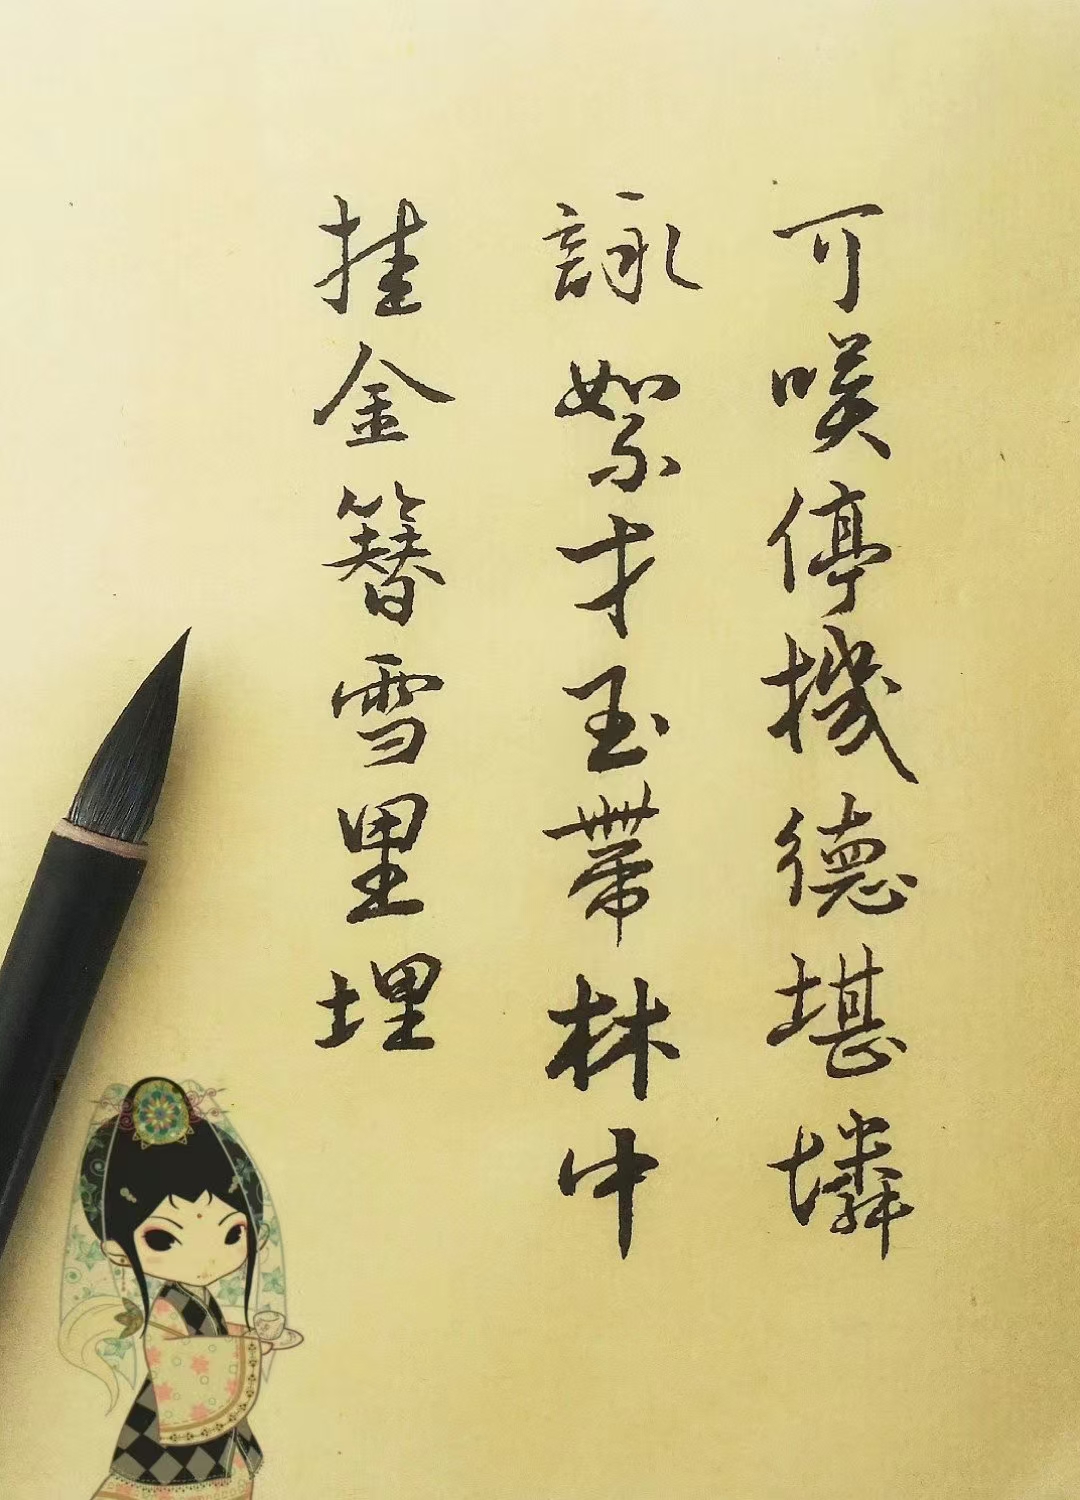 可嘆停機德堪憐
詠絮才玉帶林中
挂金簪雪里埋